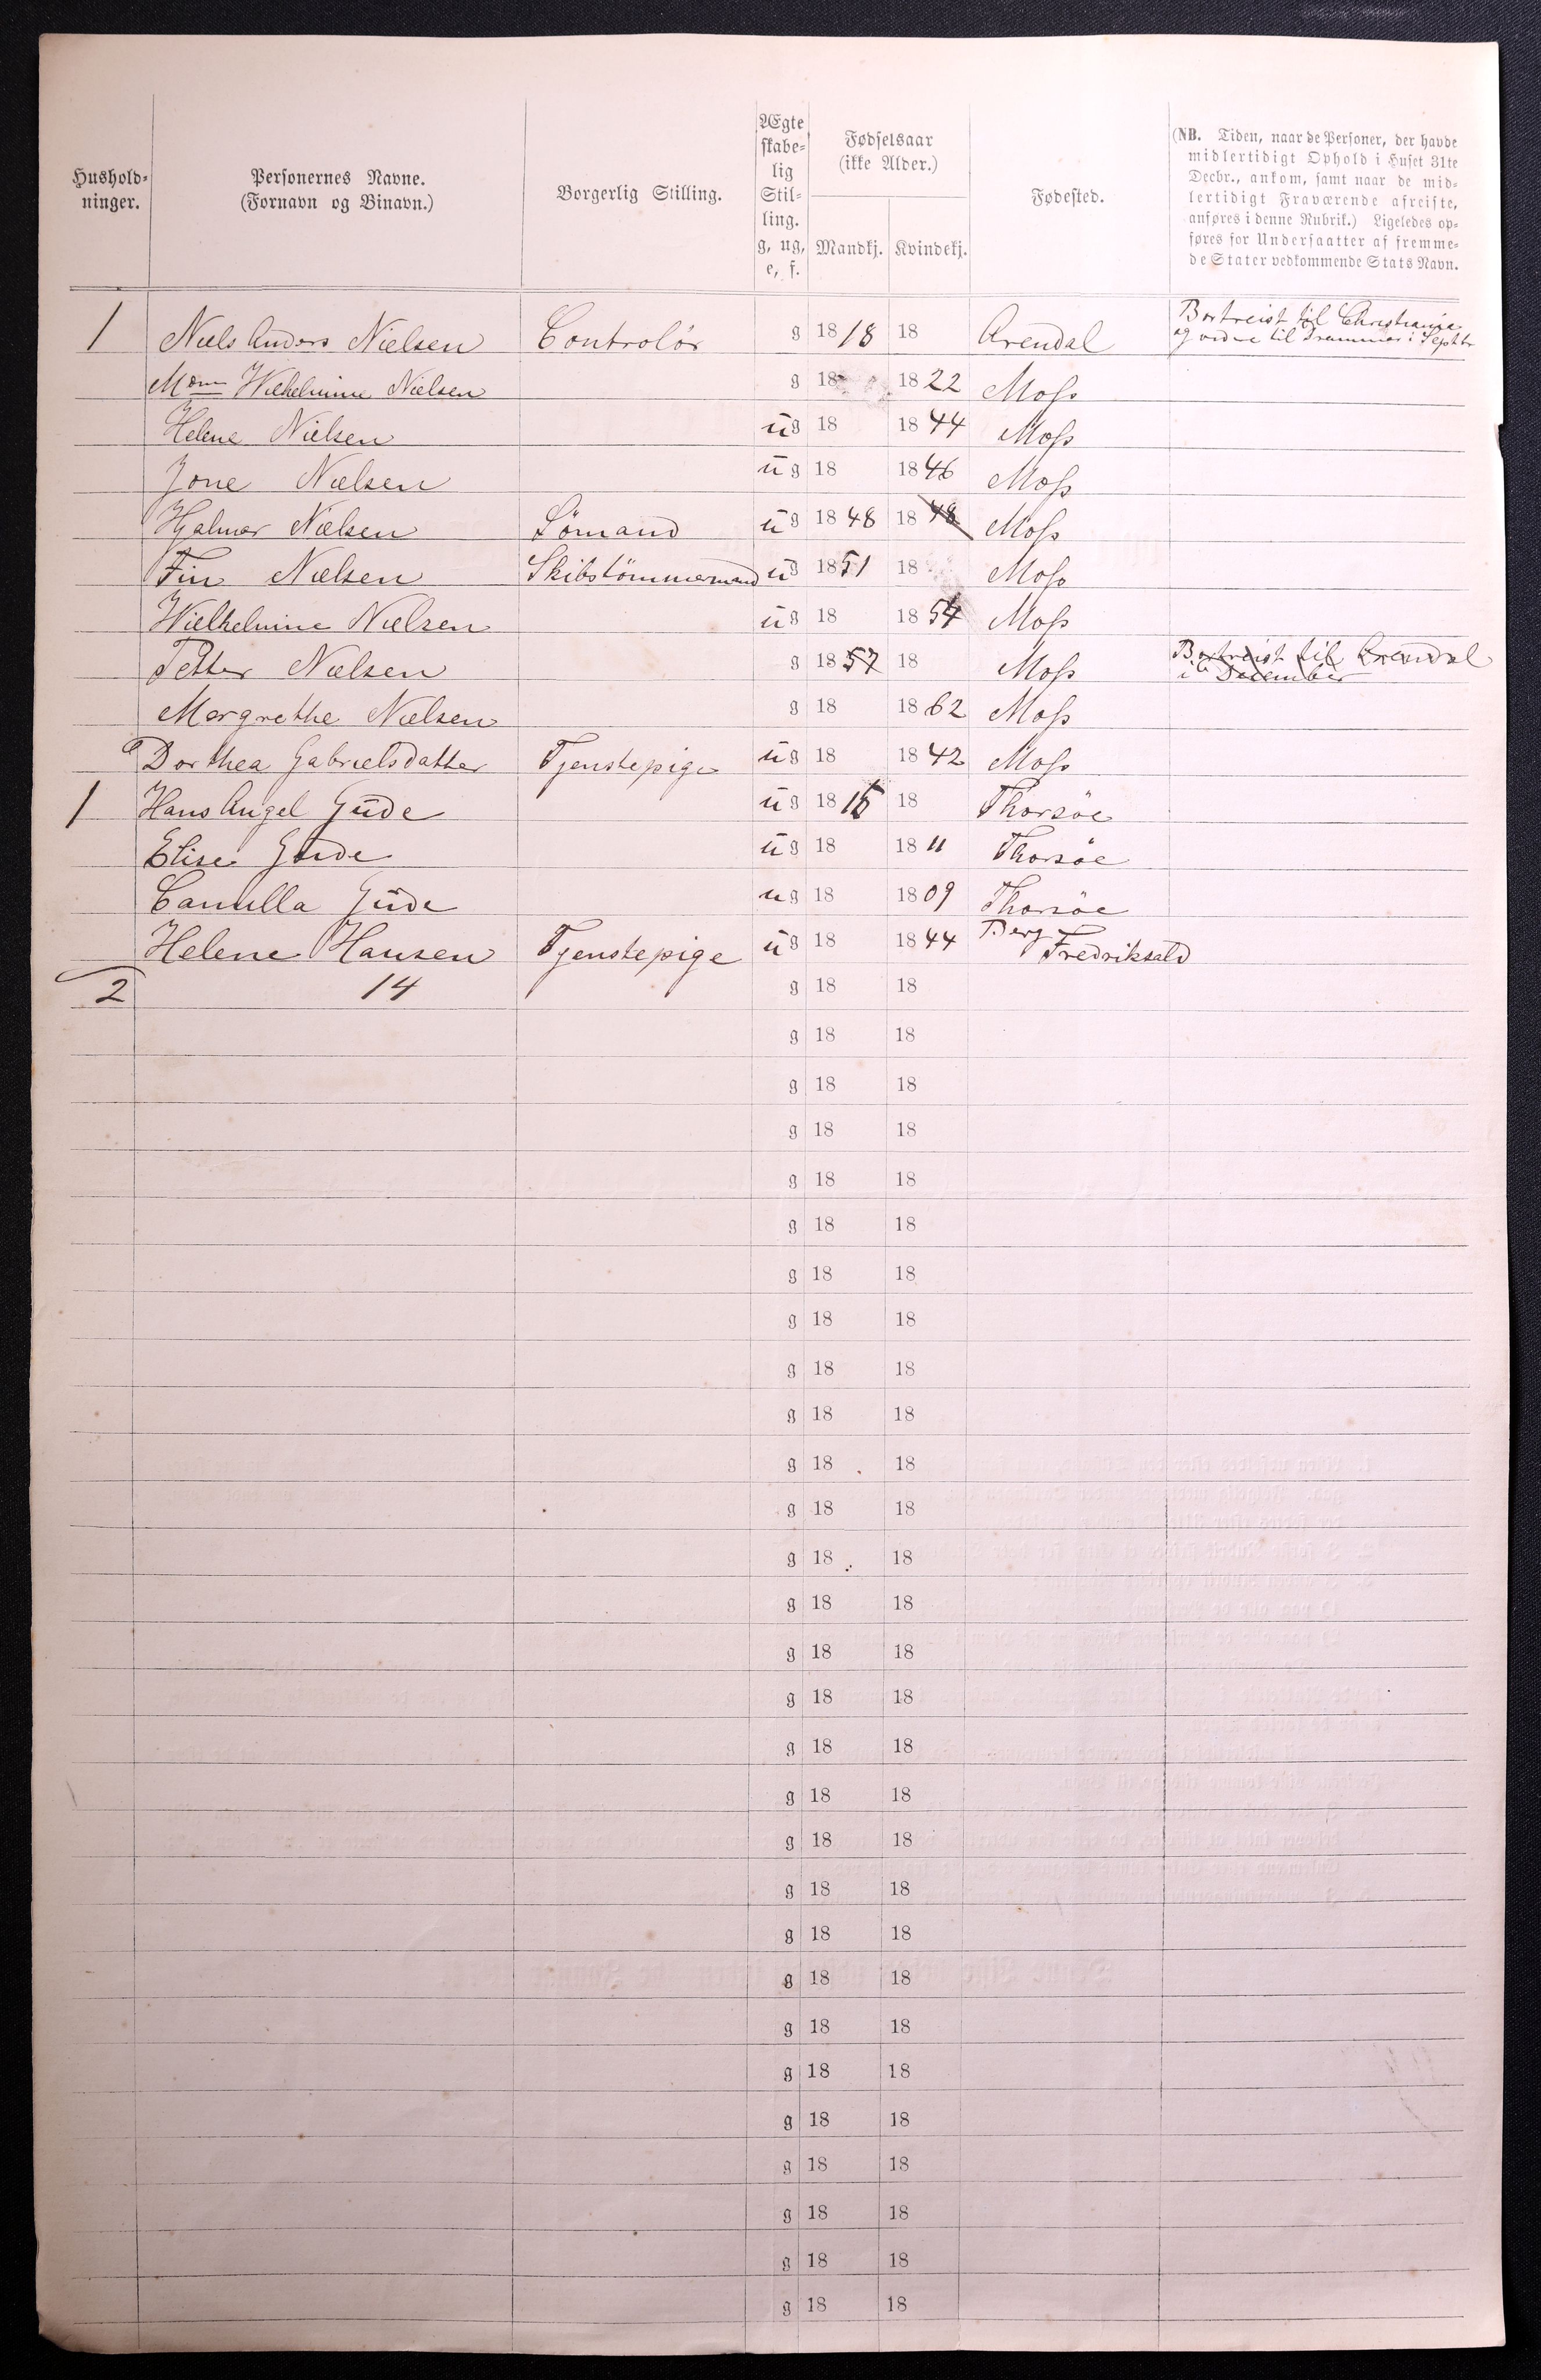 Hushold-
ninger.
Personernes Navne.
(Fornavn og Binavn.)
Borgerlig Stilling.
Ægte
skabe-
lig
Stil-
ling.
g, ug,
e, f.
Fødselsaar
(ikke Alder.)
Mandkj. Kvindekj.
Fødested.
(NB. Tiden, naar de Personer, der havde
midlertidigt Ophold i Huset 31te
Decbr., ankom, samt naar de mid-
lertidigt Fraværende afreiste,
anføres i denne Rubrik.) Ligeledes op-
føres for Undersaatter af fremme-
de Stater vedkommende Stats Navn.
1 Niels Anders Nielsen Controlör g 1818 18 Arendal Bortreist til Christiania
og til Drammen i Septbr
Mdm Wilhelmine Nielsen g 18 1822 Moss
Helene Nielsen ug 18 1844 Moss
Jone Nielsen ug 18 1846 Moss
Hjalmar Nielsen Sömand ug 1848 1848 Moss
Fin Nielsen Skibstömmermand ug 1851 18 Moss
Wielhelmine Nielsen ug 18 1854 Moss
Petter Nielsen g 1857 18 Moss Bortreist til Arendal
i December
Margrethe Nielsen g 18 1862 Moss
Dorthea Gabrielsdatter Tjenstepige ug 18 1842 Moss
1 Hans Angel Gude ug 1815 18 Thorsöe
Elise Gude ug 18 1811 Thorsöe
Camilla Gude ug 18 1809 Thorsöe
Helene Hansen Tjenstepige ug 18 1844 Berg
Fredriksald
2 14 g 18 18
g 18 18
g 18 18
g 18 18
g 18 18
g 18 18
g 18 18
g 18 18
g 18 18
g 18 18
g 18 18
g 18 18
g 18 18
g 18 18
g 18 18
g 18 18
g 18 18
g 18 18
g 18 18
g 18 18
g 18 18
g 18 18
g 18 18
g 18 18
g 18 18
g 18 18
g 18 18
g 18 18
g 18 18